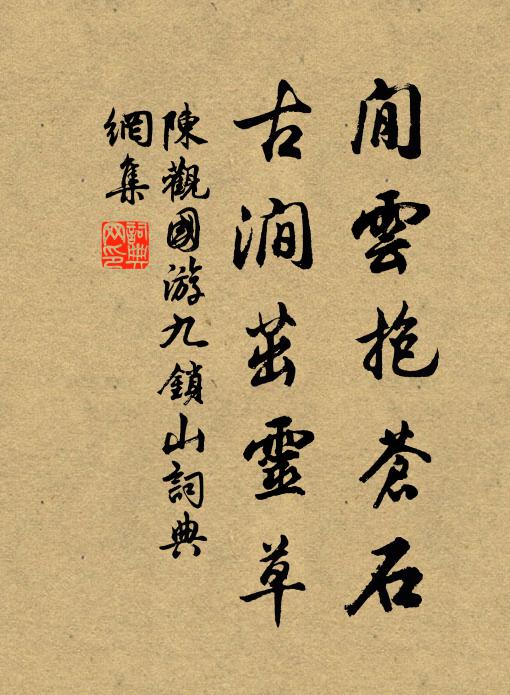 閒雲抱蒼石
古澗茁靈草
陳觀國游九鎖山詞典
網集
詞典
网印